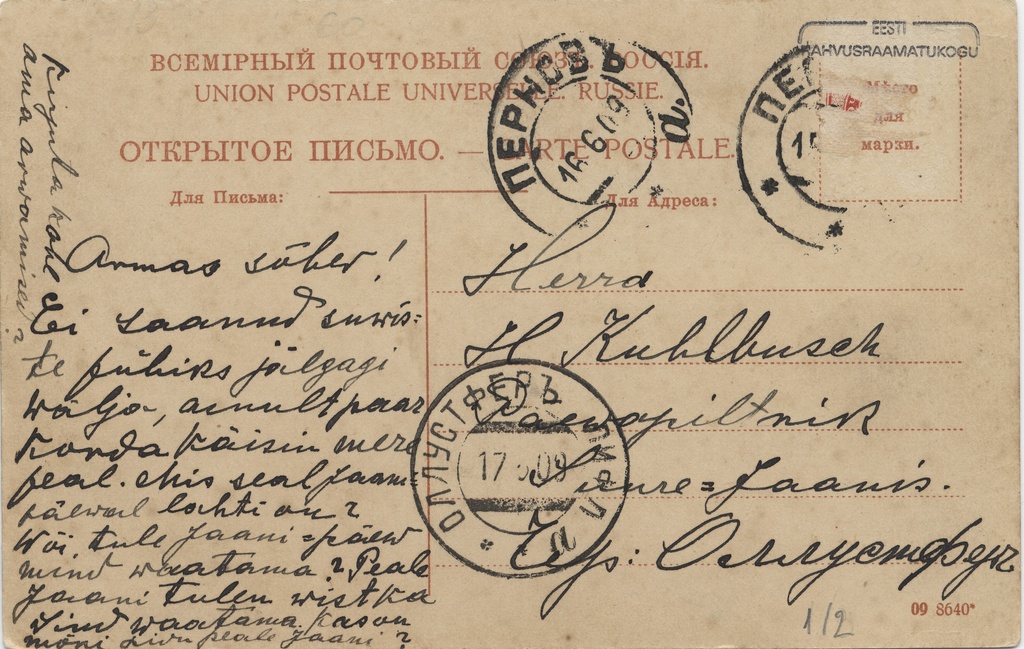 EESTI
RAHVUSRAAMATUKOGU
ВСЕМІРНЫЙ ПОЧТОВЫЙ СОЮЗЪ. РОССІЯ.
UNION POSTALE UNIVERSELLE. RUSSIE.
ОТКРЫТОЕ ПИСЬМО. — CARTE POSTALE.
Мѣсто
для
марки.
ПЕРНОВЪ
16 6 09
а
ПЕ
15
Для Письма:
Для Адреса:
Kirjuta kohe
ama arwamised?
Armas sõber!
Ei saanud suwis=
te pühiks jälgagi
wälja, ainult paar
korda käisin mere
peal. Mis seal Jaani=
päewal lahti on?
Wõi tule Jaani=päew
mind waatama? Peale
Jaani tulen wist ka
Sind waatama. Kas on
mõni Liiu peale Jaani?
Herra
H Kuhlbusch
Päewapiltnik
Suure=Jaanis.
Ст: Оллустферъ
ОЛЛУСТФЕРЪ ЛИФЛ
17 6 09
1/2
09 8640*